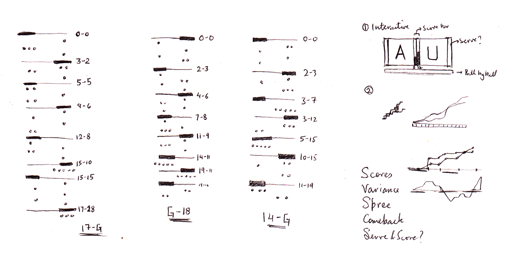 0-0
3-2
5-5
9-6
12-8
15-10
15-15
17-28
17-G
0-0
2-3
4-6
7-8
11-9
14-11
19-11
G-18
0-0
2-3
3-7
3-12
5-15
10-15
11-19
14-G
① Interactive
Score bar
Serve?
A U
Ball by Ball
②
Scores
Variance
Spree
Comeback
Serve & Score?